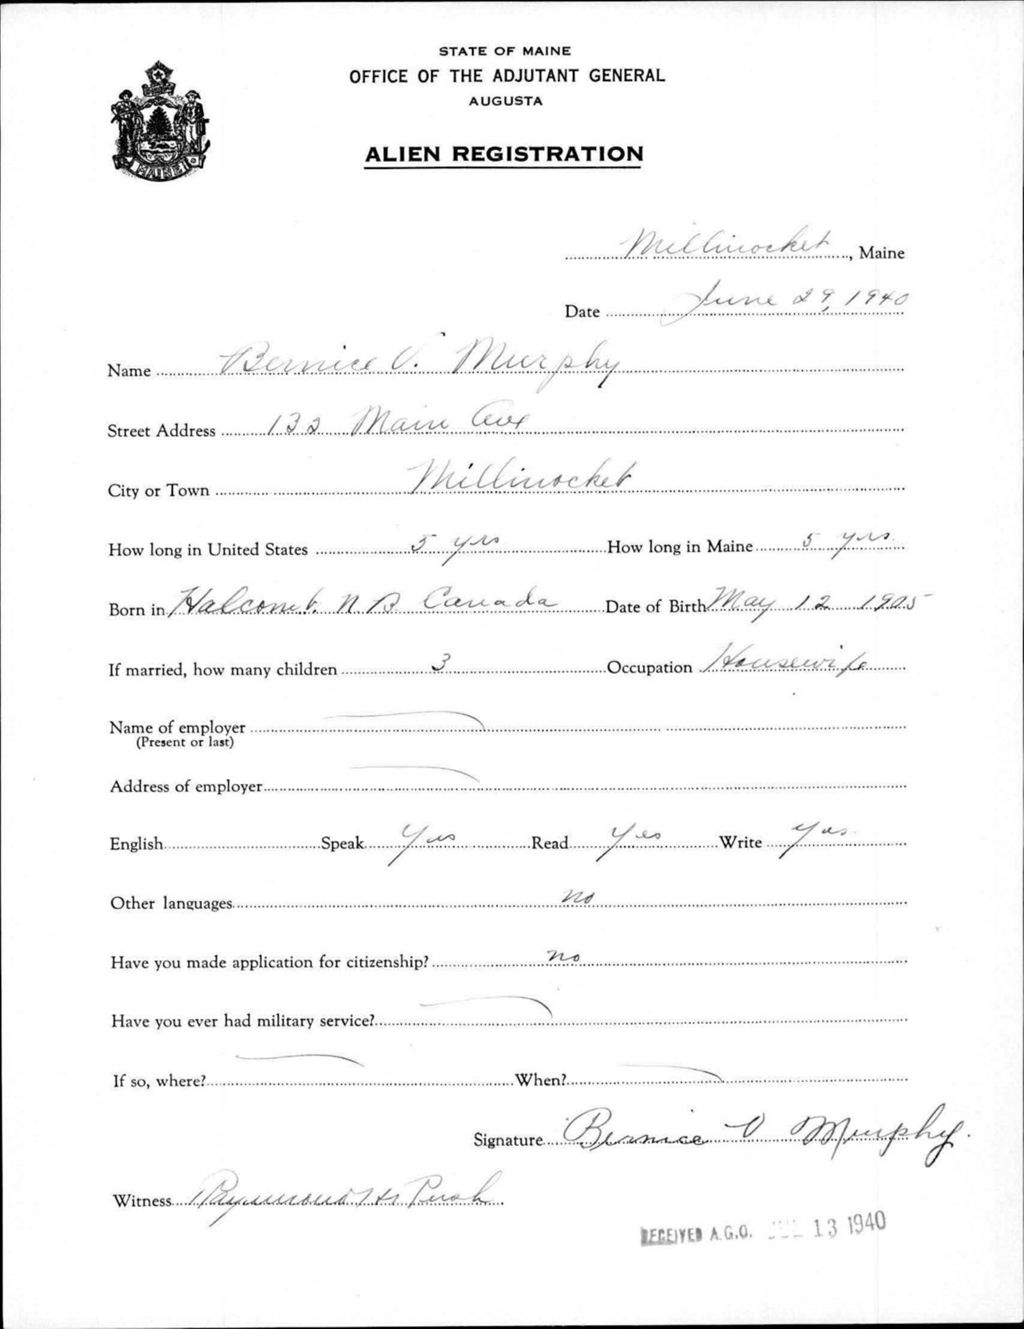 STATE OF MAINE
OFFICE OF THE ADJUTANT GENERAL
AUGUSTA
MAINE
ALIEN REGISTRATION
Millinocket, Maine
Date June 29, 1940
Name Bernice V. Murphy
Street Address 132 Main Ave
City or Town Millinocket
How long in United States 5 yrs How long in Maine 5 yrs
Born in Halcomb N B Canada Date of Birth May 12 1905
If married, how many children 3 Occupation Housewife
Name of employer
(Present or last)
Address of employer
English Speak Yes Read Yes Write Yes
Other languages no
Have you made application for citizenship? no
Have you ever had military service?
If so, where? When?
Signature Bernice V Murphy
Witness Raymond H
RECEIVED A.G.O. JUL 13 1940